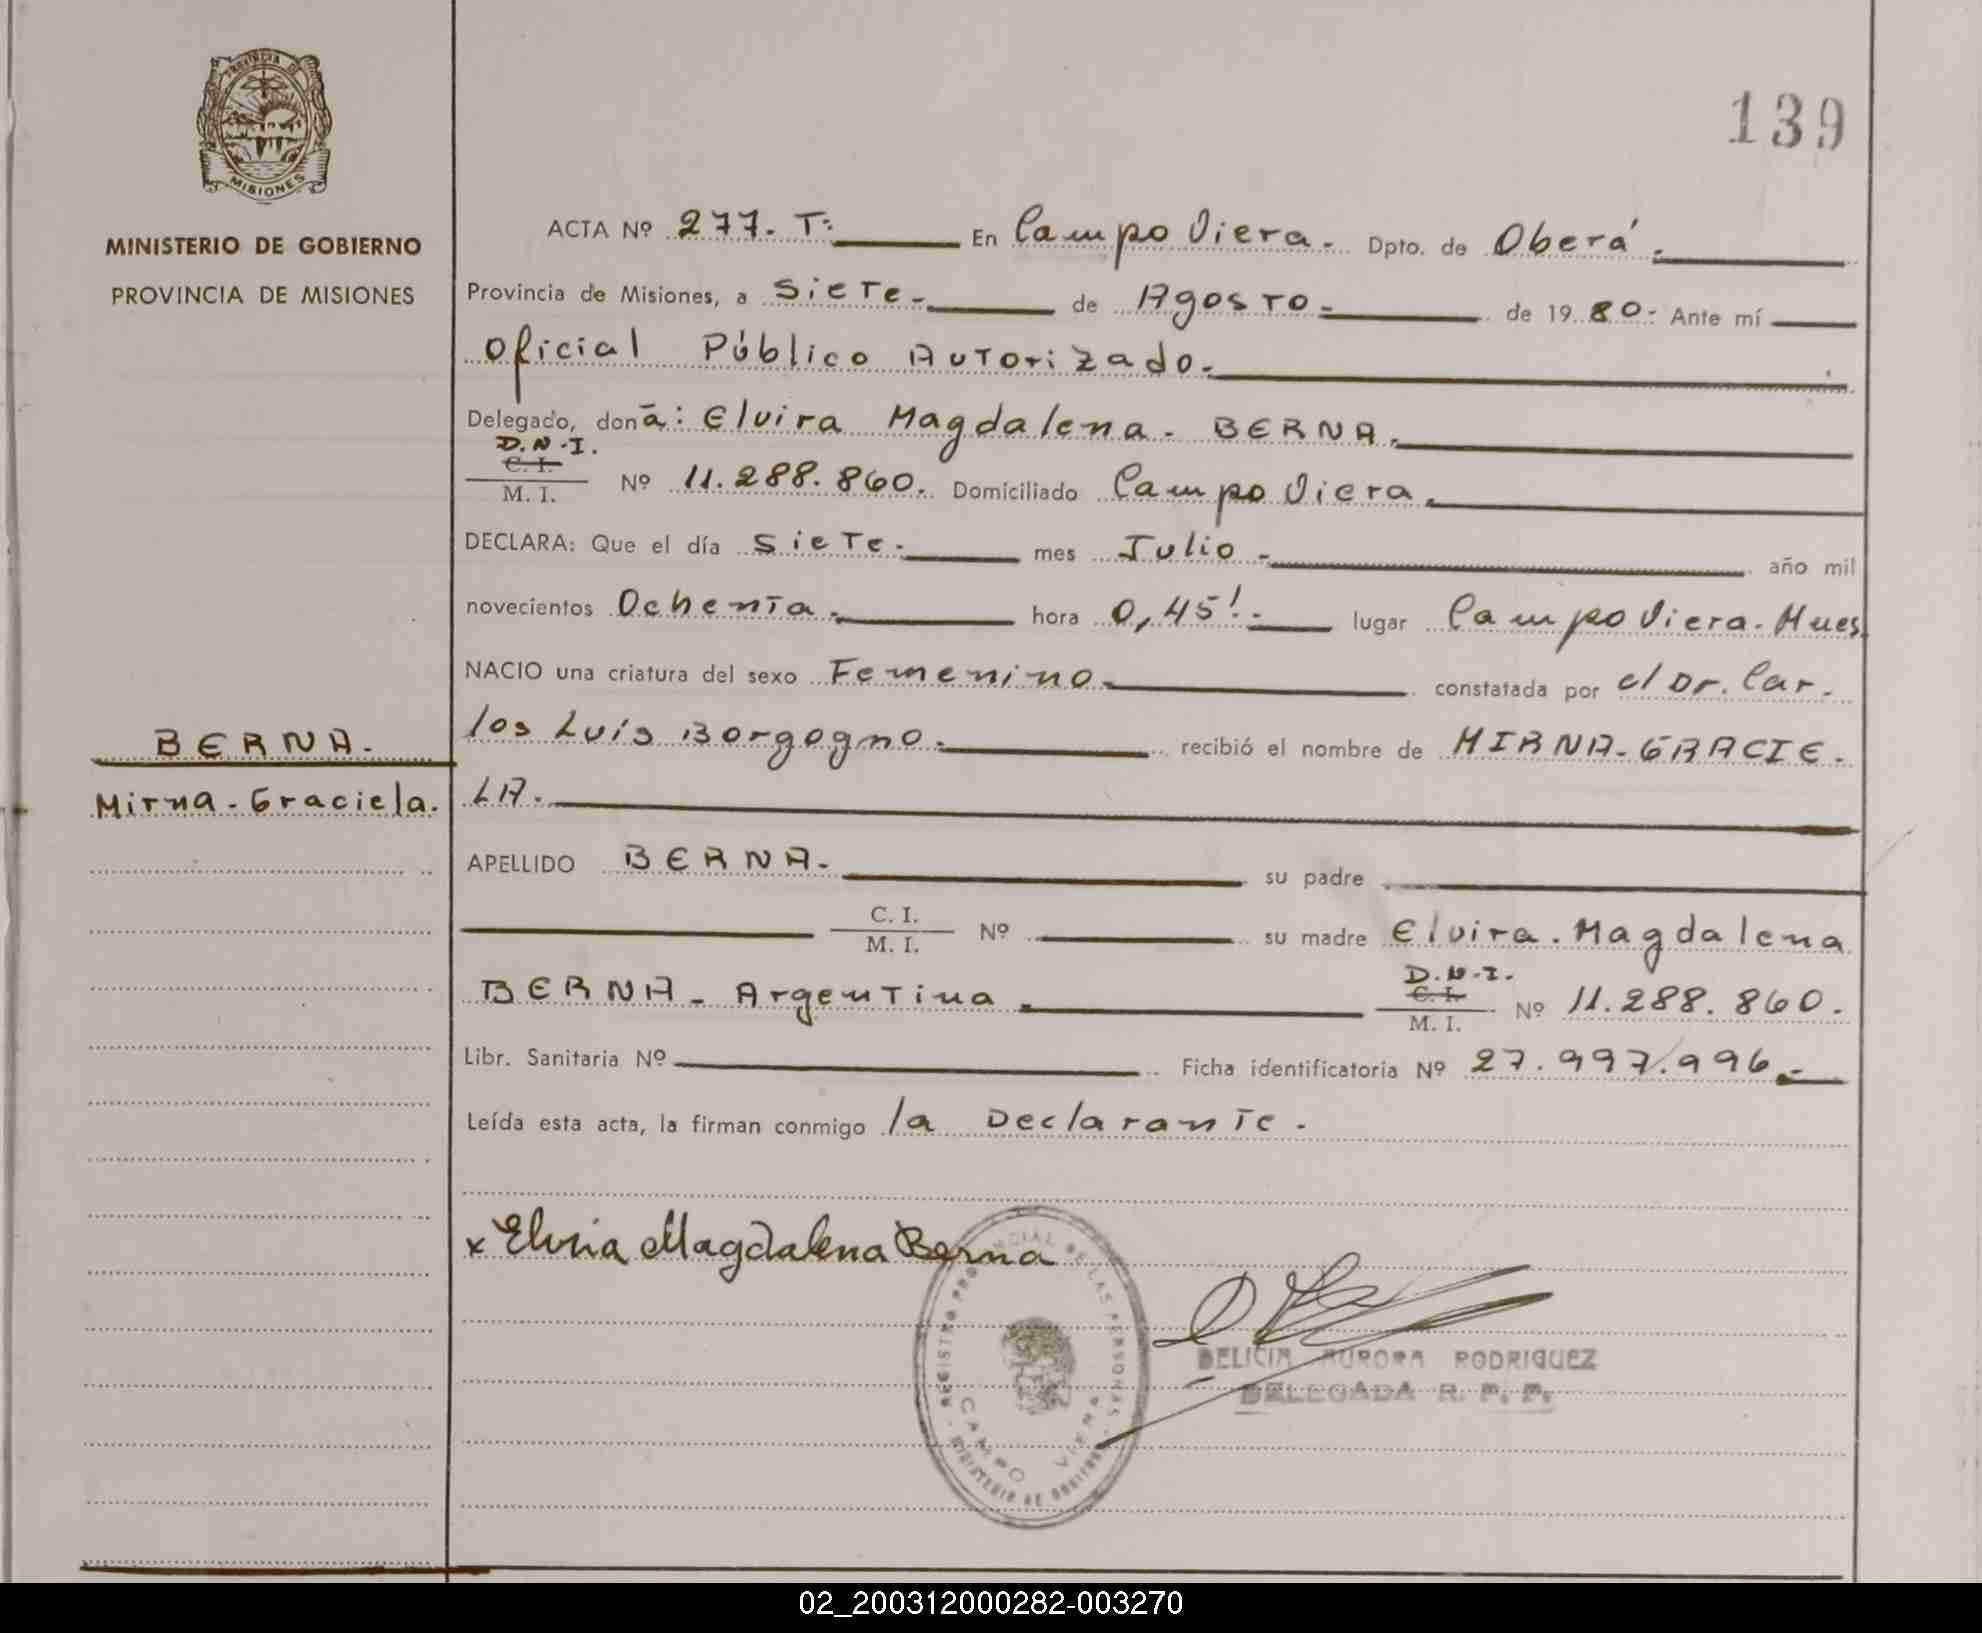 PROVINCIA DE
MISIONES
MINISTERIO DE GOBIERNO
PROVINCIA DE MISIONES
139
ACTA Nº 277. T: En Campo Viera. Dpto. de Oberá.
Provincia de Misiones, a siete. de Agosto. de 1980. Ante mí
Oficial Público Autorizado.
Delegado, donã: Elvira Magdalena. BERNA.
D.N.I.
C. I.
M. I. Nº 11.288.860. Domiciliado Campo Viera.
DECLARA: Que el día siete. mes Julio. año mil
novecientos Ochenta. hora 0,45'. lugar Campo Viera. Mues
NACIO una criatura del sexo Femenino. constatada por el Dr. Car.
los Luis Borgogno. recibió el nombre de MIRNA-GRACIE.
LA.
BERNA.
Mirna-Graciela.
APELLIDO BERNA. su padre
C. I.
M. I. Nº su madre Elvira. Magdalena
D.N.I.
BERNA - Argentina. C. I.
M. I. Nº 11.288.860.
Libr. Sanitaria Nº Ficha identificatoria Nº 27.997.996.
Leída esta acta, la firman conmigo la Declarante.
x Elvira Magdalena Berna
REGISTRO PROVINCIAL DE LAS PERSONAS
CAMPO VIERA
MINISTERIO DE GOBIERNO
DELICIA AURORA RODRIGUEZ
DELEGADA R. P. P.
02_200312000282-003270